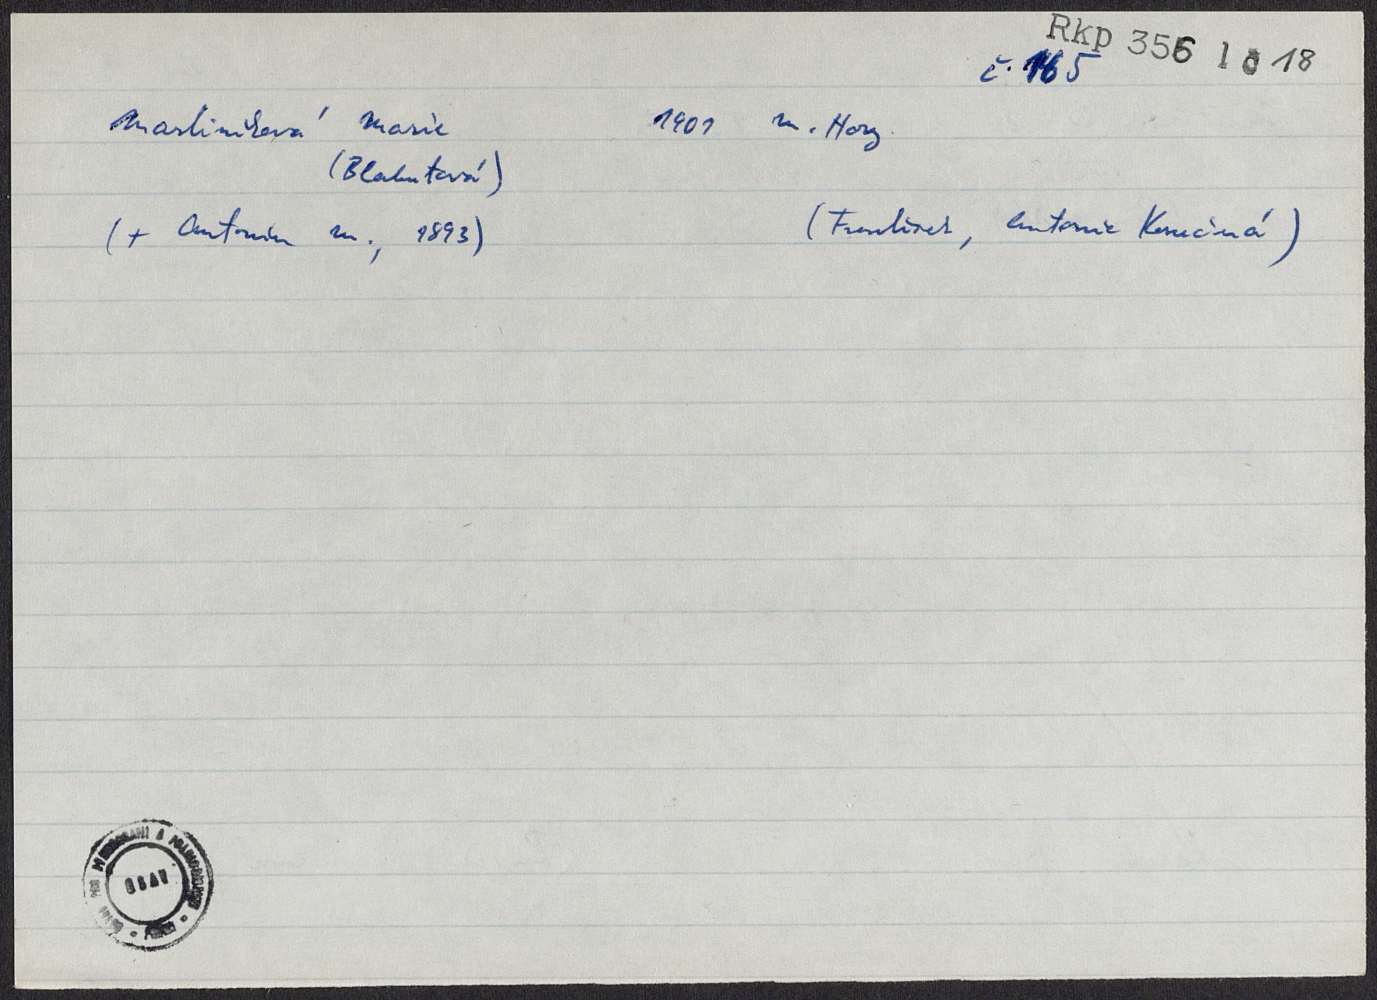 Rkp 356 1 0 18
č. 165
Martiníková Marie 1901 M. Hory
(Blahutová)
(+ Antonín M., 1893) (František, Antonie Konečná)
ČSAV
BRNO